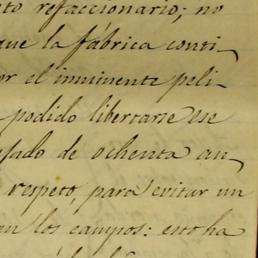 to refaccionario; no
que la fábrica conti_
or el inminente peli_
podido libertarse ese
sado de ochenta an_
respeto, para evitar un
an los campos: esto ha